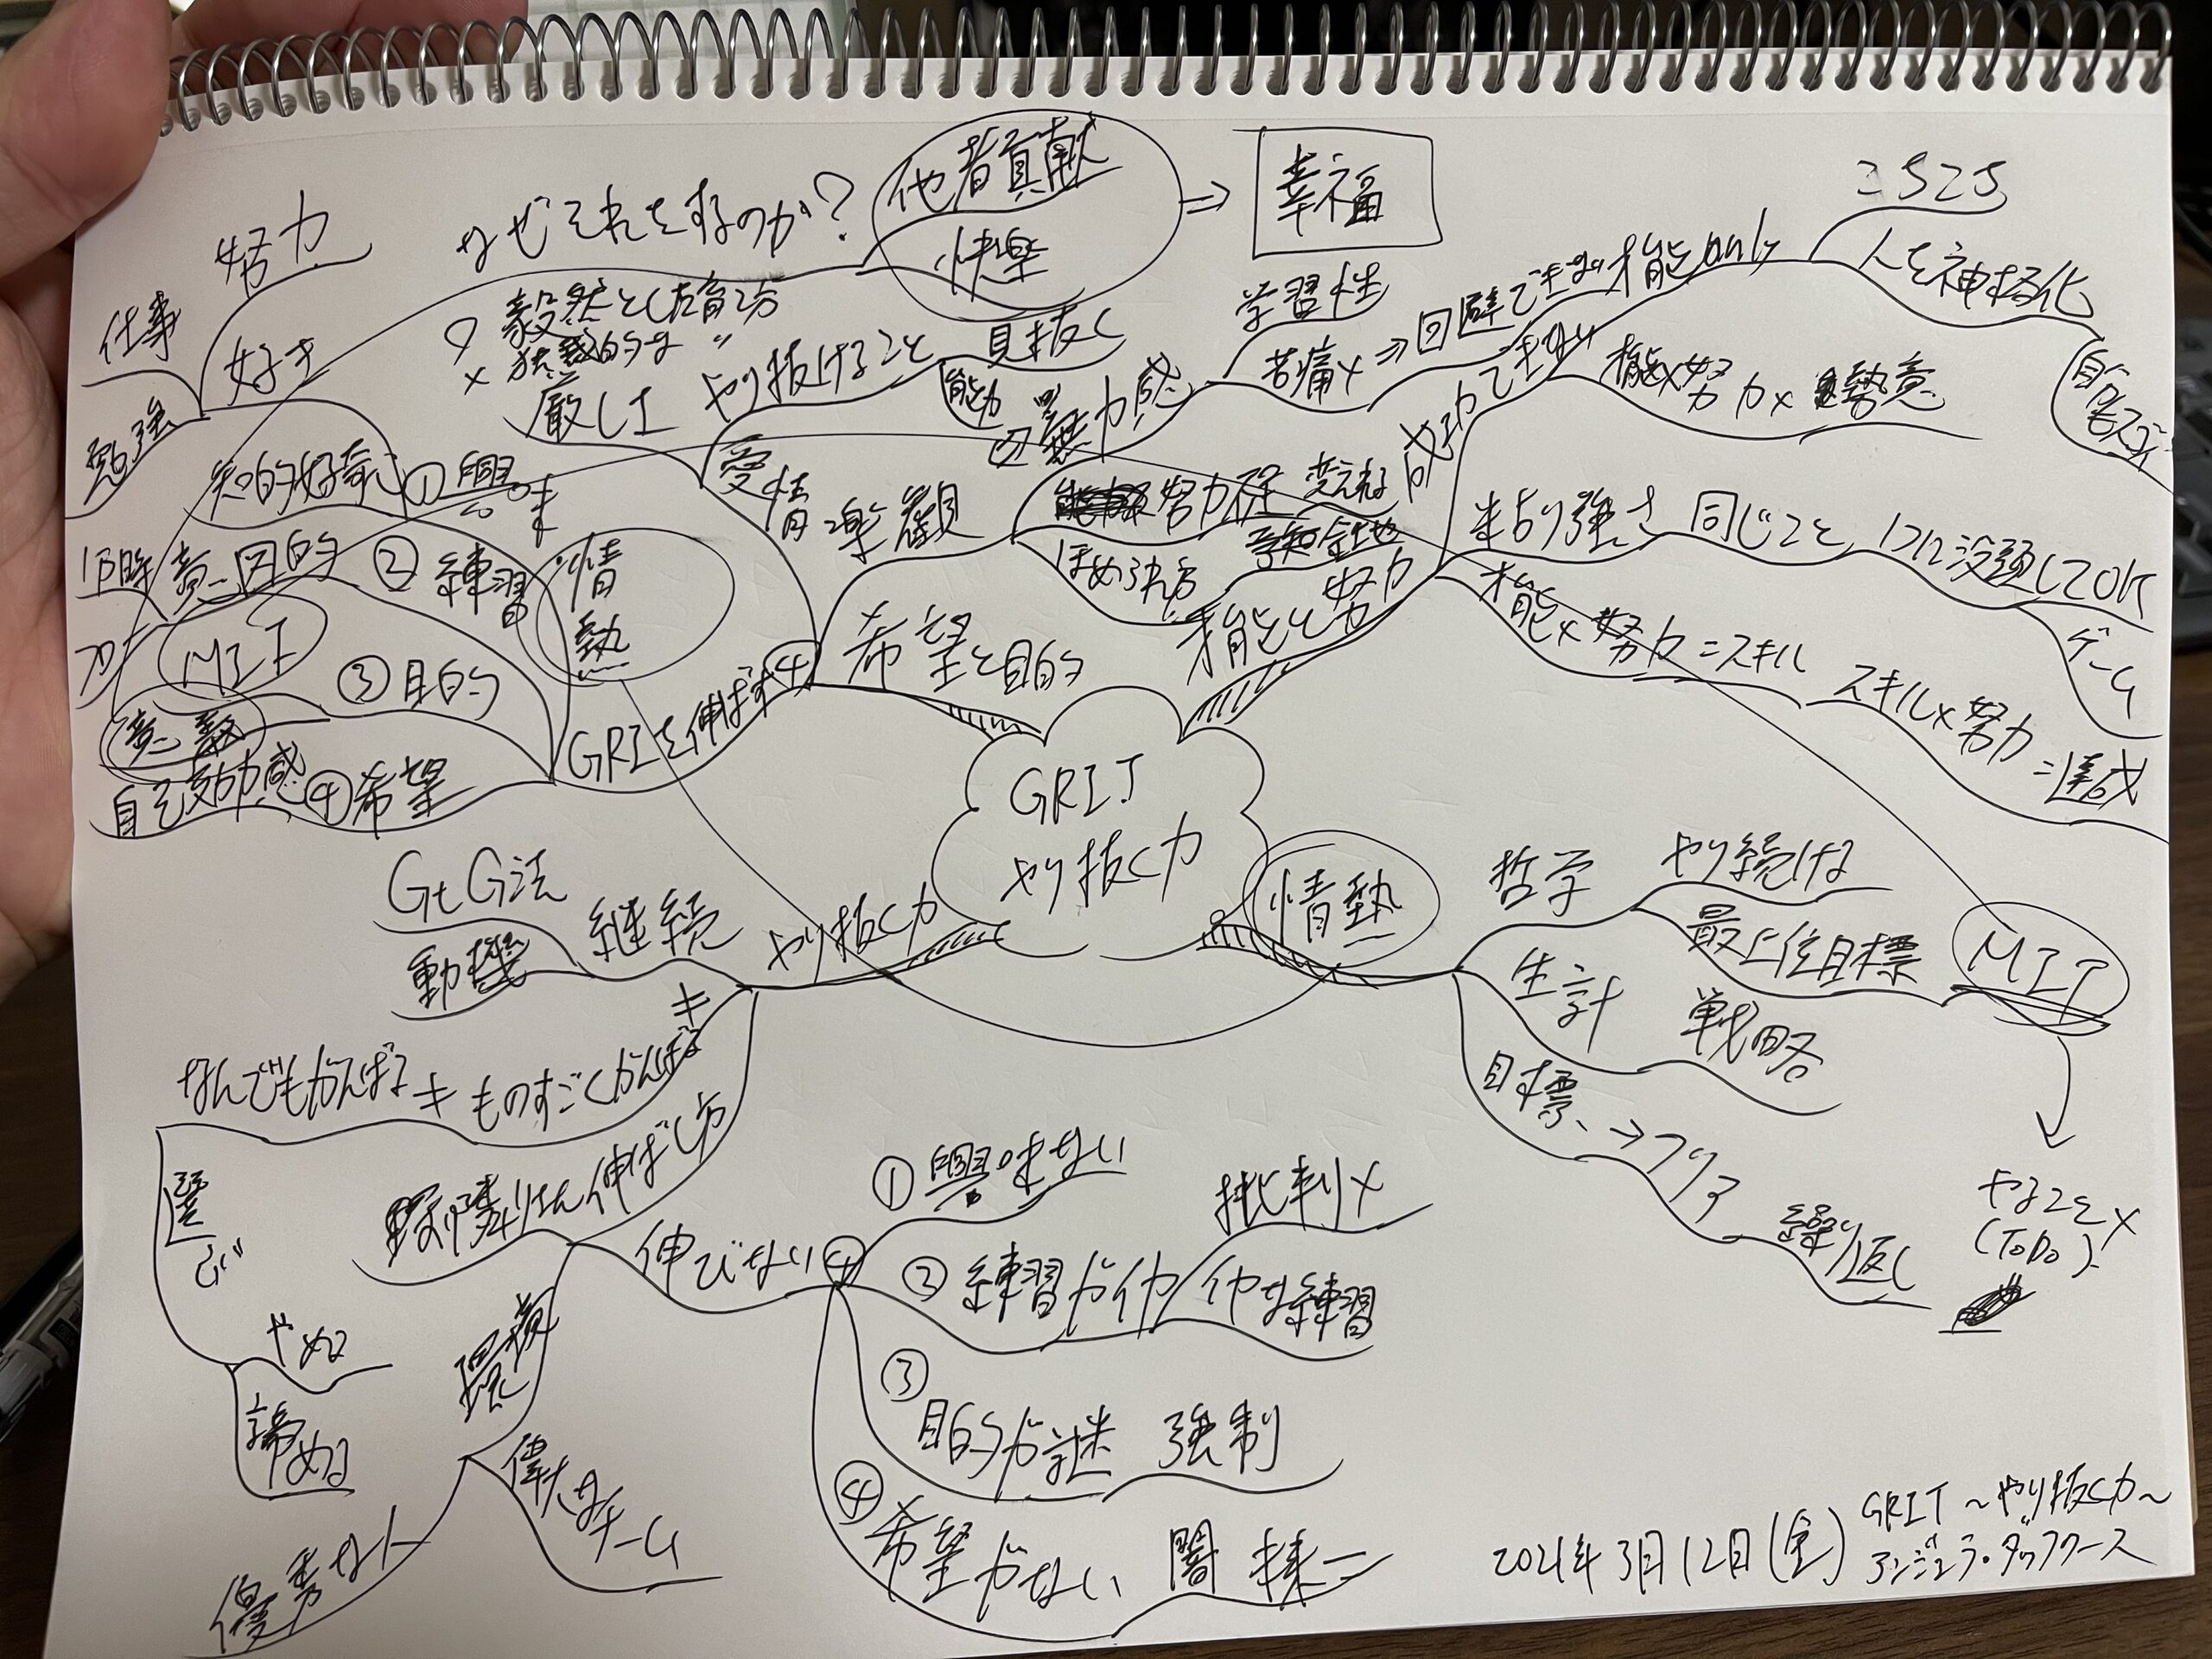 努力
仕事
好き
勉強
なぜそれをするのか?
他者貢献
快楽
⇒
幸福
○ 毅然とした育て方
× 独裁的な 〃
厳しさ
やり抜けること
見抜く
能力
愛情
学習性
無力感
苦痛× ⇒ 回避できない
楽観
努力程
変えれる
ほめられ方
希望と目的
才能only
人を神格化
才能×努力×熱意
成功
才能と努力
粘り強さ
同じこと
1つに没頭してOK
ゲーム
才能×努力=スキル
スキル×努力=達成
知的好奇心
①興味
意図的
②練習
情熱
MIT
③目的
意義
自己効力感
④希望
GRITを伸ばす④
GRIT
やり抜く力
情熱
哲学
やり続ける
最上位目標
MIT
生計
戦略
目標
→クリア
繰り返し
やること×
(ToDo)
やり抜く力
継続
GtG法
動機
なんでもがんばる ≠ ものすごくがんばる
選ぶ
やめる
諦める
伸ばし方
環境
偉大なチーム
優秀な人
伸びない④
①興味ない
②練習がイヤ
批判×
イヤな練習
③
目的が謎
強制
④
希望がない
闇
2021年3月12日(金)
GRIT ~やり抜く力~
アンジェラ・ダックワース